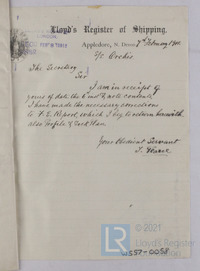 Lloyd's Register of Shipping.
Appledore, N. Devon
7th February
S/S Orchis
The Secretary
Sir
I am in receipt of
yours of date the 6 inst & note contents
I have made the necessary corrections
to F. E. Report which I beg to return herewith
also Profile & Deck Plan
Your Obedient Servant
W557-0058
© 2021
Lloyd's
Register